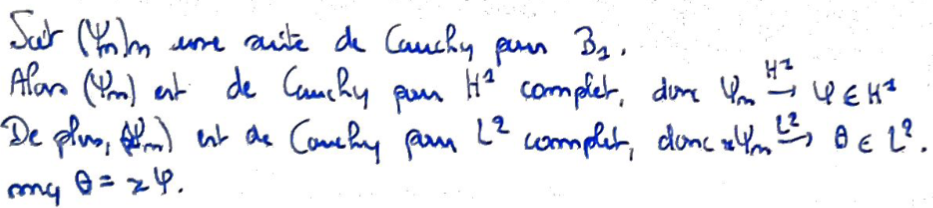 Soit (Ψn)n une suite de Cauchy pour B1.
Alors (Ψn) est de Cauchy pour H¹ complet, donc Ψn —H¹→ Ψ ∈ H¹
De plus, (xΨn) est de Cauchy pour L² complet, donc xΨn —L²→ θ ∈ L².
mq θ = xΨ.